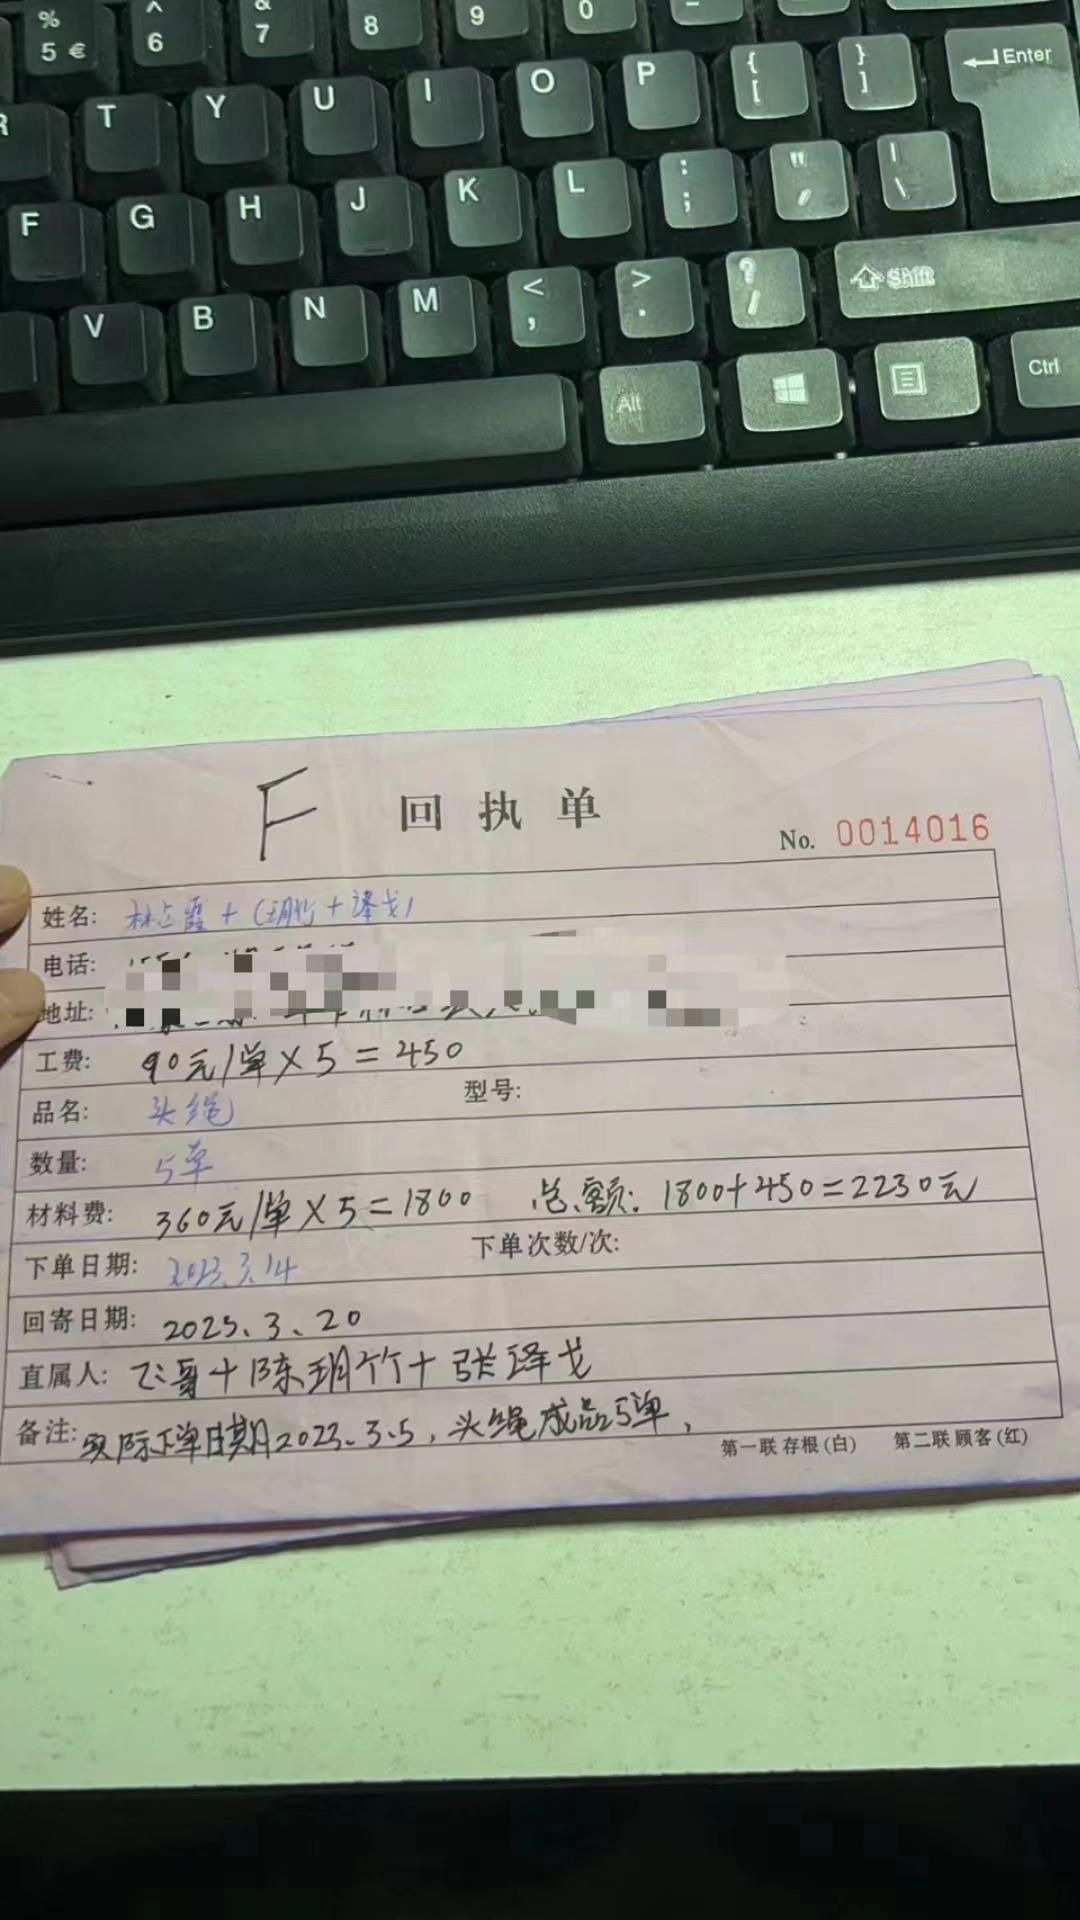 % 5 € ^ 6 & 7 8 9 0 -
R T Y U I O P { [ } ] Enter
F G H J K L : ; " | \
V B N M < , > . ? / Shift
Alt Ctrl
F 回执单
No. 0014016
姓名: 林 霞+(玥竹+泽戈)
电话:
地址:
工费: 90元/单×5=450
品名: 头绳 型号:
数量: 5单
材料费: 360元/单×5=1800 总额: 1800+450=2230元
下单日期: 2023.3.14 下单次数/次:
回寄日期: 2023.3.20
直属人: 飞哥+陈玥竹+张泽戈
备注: 实际下单日期2023.3.5,头绳成品5单,
第一联 存根(白) 第二联 顾客(红)